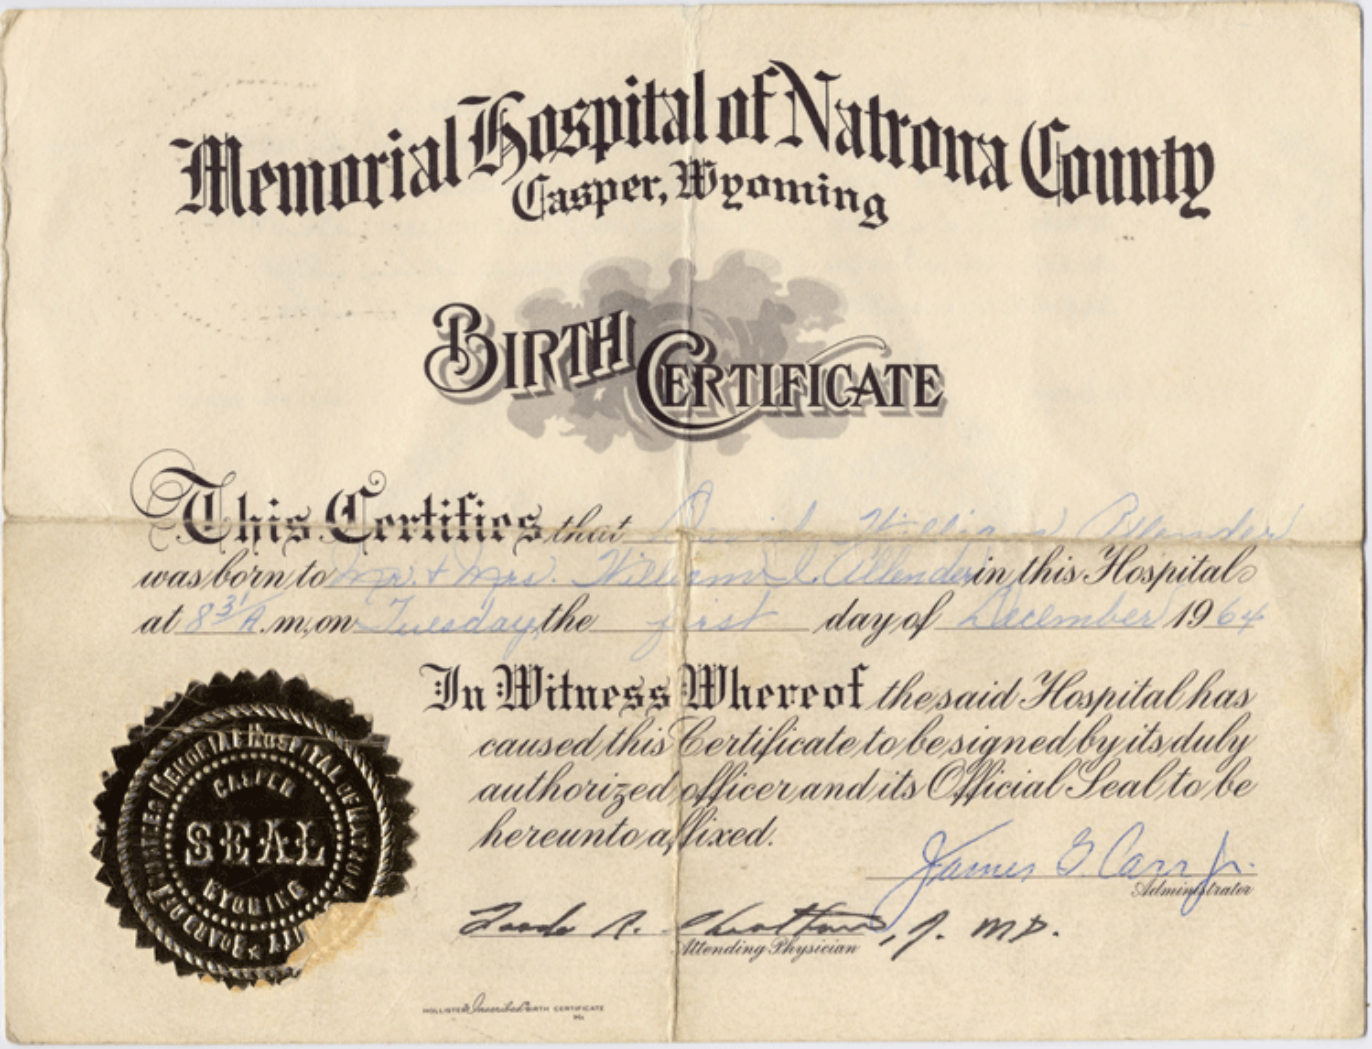 Memorial Hospital of Natrona County
Casper, Wyoming
BIRTH CERTIFICATE
This Certifies that David William Allender
was born to Mr. & Mrs. William L. Allender in this Hospital
at 8 31 A.m., on Tuesday, the first day of December 1964
In Witness Whereof the said Hospital has
caused this Certificate to be signed by its duly
authorized officer and its Official Seal to be
hereunto affixed.
James G. Carr Jr.
Administrator
Jr. MD.
Attending Physician
BOARD OF TRUSTEES MEMORIAL HOSPITAL OF NATRONA
CASPER
SEAL
WYOMING
HOLLISTER Inscribed BIRTH CERTIFICATE